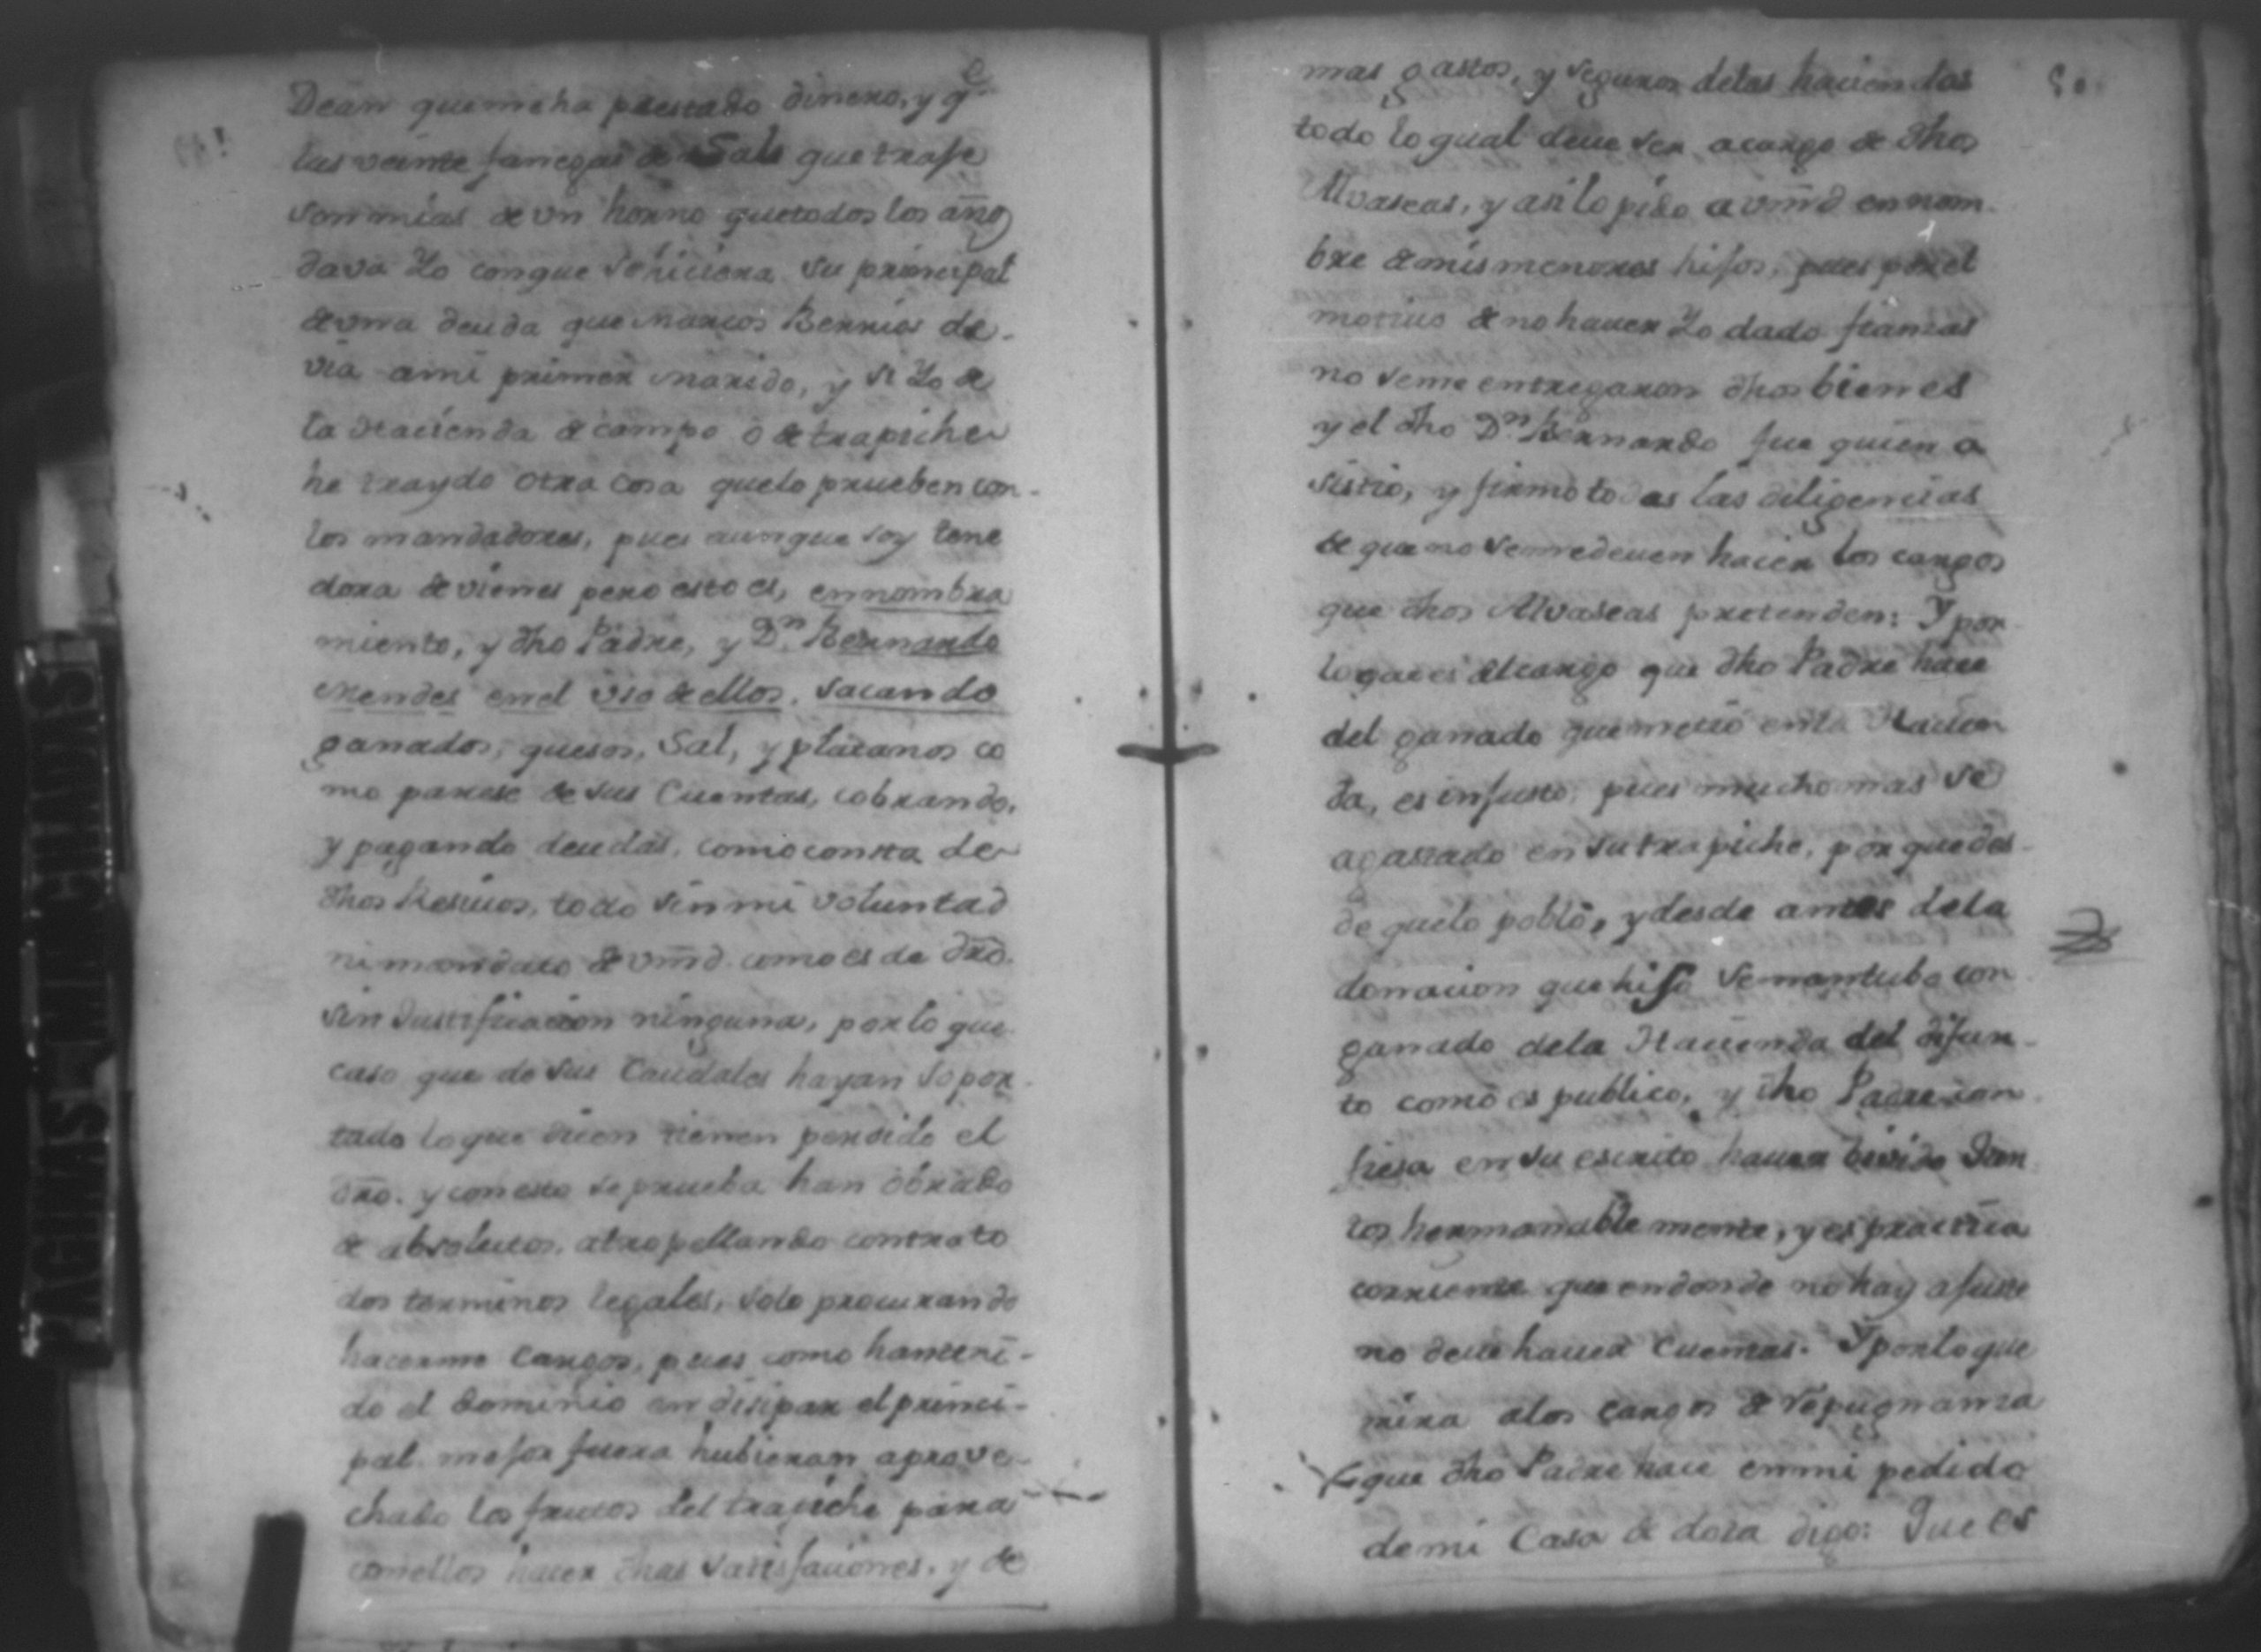 Dean que me ha prestado dinero, y qᵉ
las veinte fanegas de Sal que traje
son mias de vn horno que todos los años
dava Yo con que se hiciera su principal
de vna deuda que Marcos Berrios de-
via a mi primer marido, y si Yo de
la Hacienda de campo ô de trapiche
he traydo otra cosa que lo prueben con-
los mandadores, pues aunque soy tene
dora de vienes pero esto es, en nombra
miento, y dho Padre, y Dⁿ. Bernardo
Mendes en el vso de ellos. sacando
ganados, quesos, Sal, y platanos co
mo parese de sus Cuentas, cobrando,
y pagando deudas, como consta de
dhos Resiuos, todo sin mi voluntad
ni mandato de vm̃d. como es de dr̃o.
sin Justificacion ninguna, por lo que
caso que de sus Caudales hayan sopor-
tado lo que dicen tienen perdido el
dr̃o. y con esto se prueba han obrado
de absolutos, atropellando contrato
dos terminos legales, solo procurando
hacerme cargos, pues como han teni-
do el dominio en disipar el princi-
pal mejor fuera hubieran aprove-
chado los frutos del trapiche para
con ellos hacer dhas satisfaciones, y de
mas gastos, y seguros de las haciendas
todo lo qual deue ser acargo de dhos
Alvaseas, y asi lo pido a vm̃d en nom-
bre de mis menores hijos, pues por el
motiuo de no hauer Yo dado fianzas
no se me entregaron dhos bienes
y el dho Dⁿ. Bernardo fue quien a
sistio, y firmo todas las diligencias
de que no se me deuen hacer los cargos
que dhos Alvaseas pretenden: Y por
lo que es el cargo que dho Padre hace
del ganado que metio en la Hacien
da, es injusto, pues mucho mas se
a gastado en su trapiche, por que des-
de que lo poblô, y desde antes de la
donacion que hiso se mantubo con
ganado de la Hacienda del difun-
to como es publico, y dho Padre con
fiesa en su escrito hauer bivido Jun
tos hermanablemente, y es practica
corriente que en donde no hay ajuste
no deue hauer cuentas. Y por lo que
mira a los cargos de repugnansa
que dho Padre hace en mi pedido
de mi Casa de dota digo: Que es